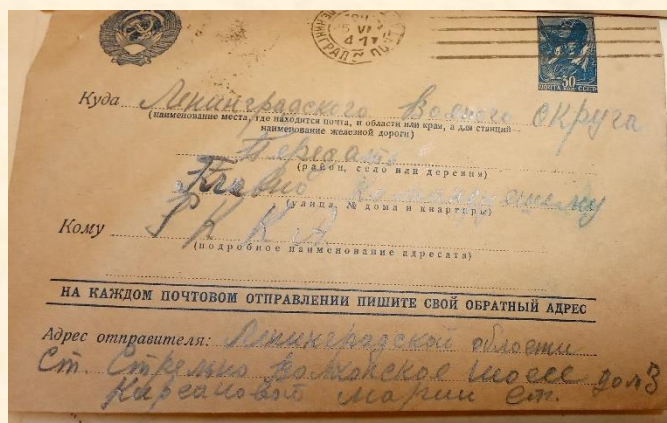 ЛЕНИНГРАД
ПОЧТА СССР
30
Куда Ленинградского Военого Округа
(наименование места, где находится почта, и области или края, а для станций
наименование железной дороги)
Передать
(район, село или деревня)
Главно Командующему
(улица, № дома и квартиры)
Кому РККА
(подробное наименование адресата)
НА КАЖДОМ ПОЧТОВОМ ОТПРАВЛЕНИИ ПИШИТЕ СВОЙ ОБРАТНЫЙ АДРЕС
Адрес отправителя: Ленинградской области
Ст. Стрельно Волхонское шоссе дом 3
Кирсановой Марии Ст.